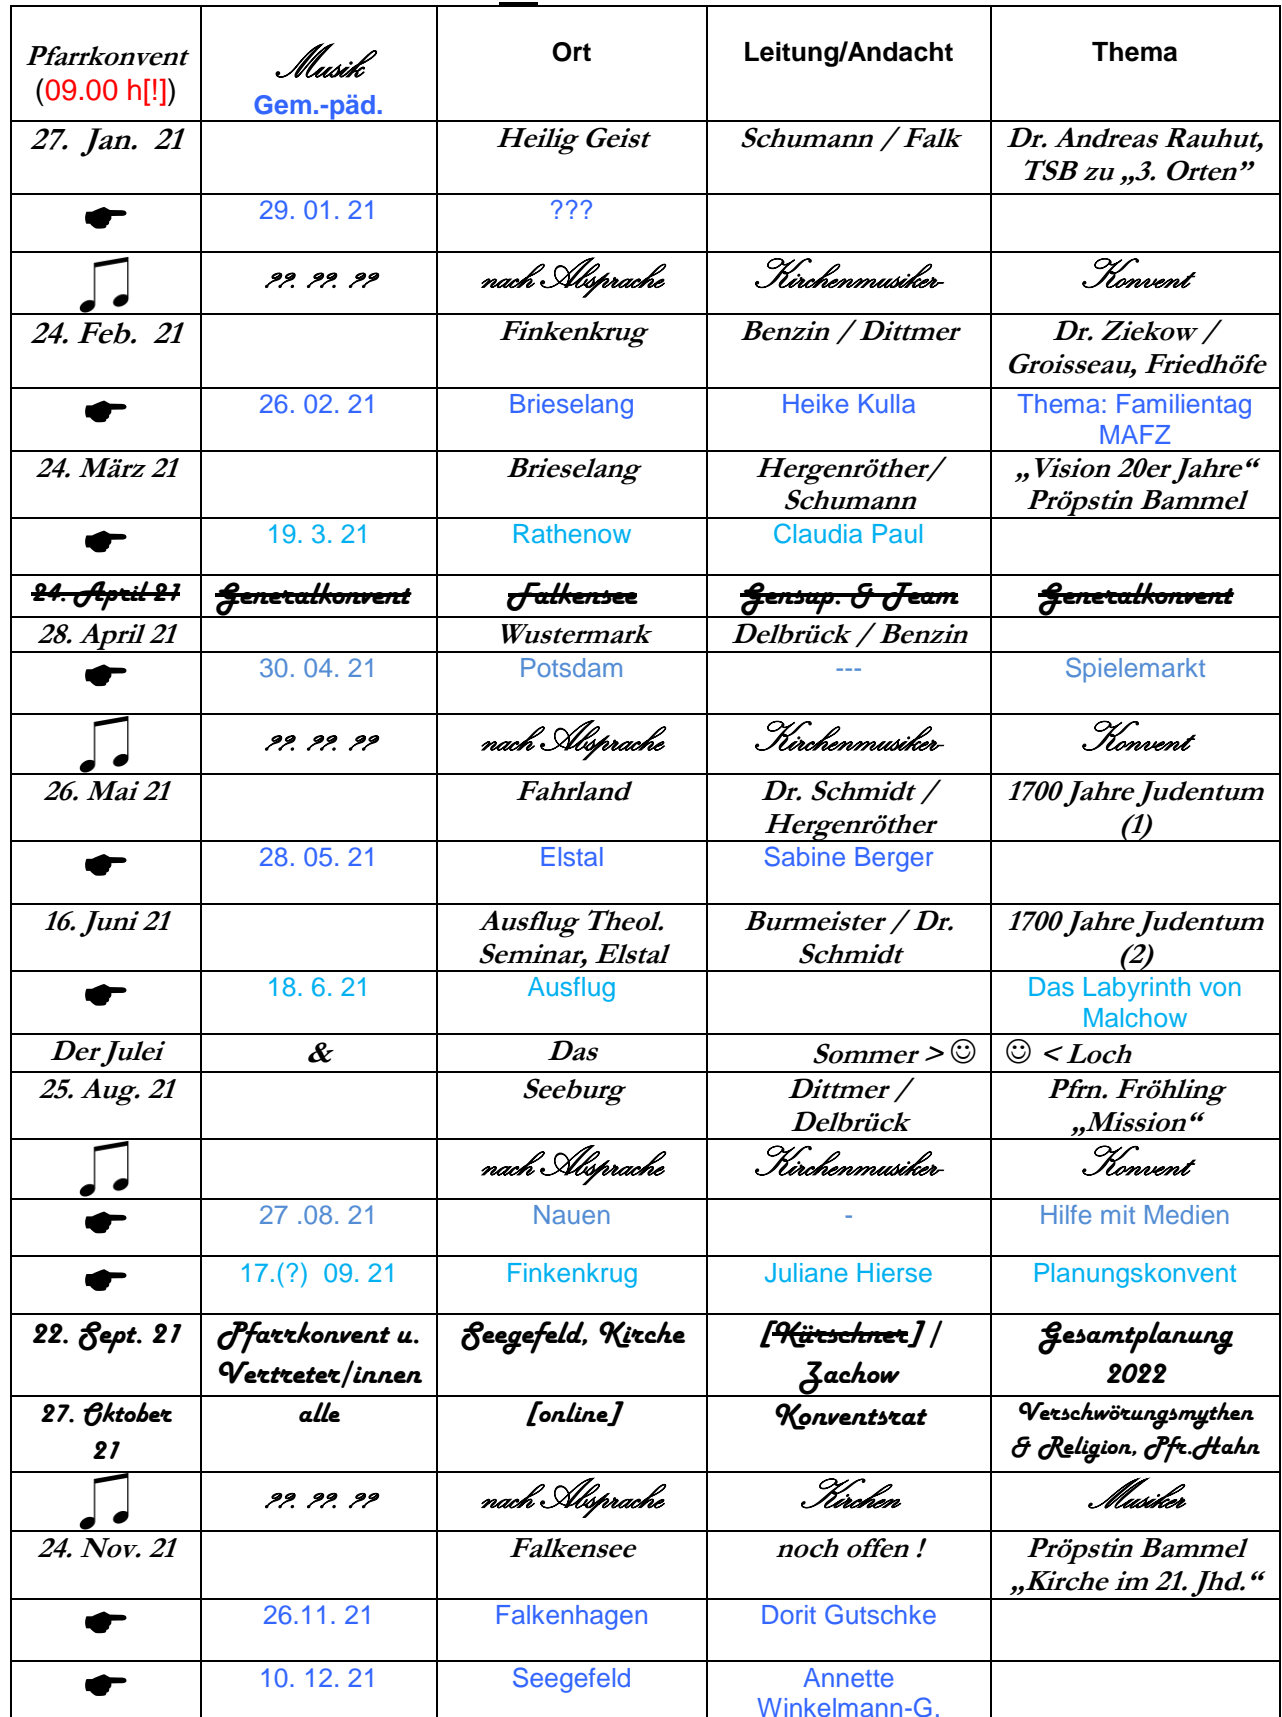 Pfarrkonvent (09.00 h[!]) Musik Gem.-päd. Ort Leitung/Andacht Thema
27. Jan. 21 Heilig Geist Schumann / Falk Dr. Andreas Rauhut,
TSB zu „3. Orten”
29. 01. 21 ???
??. ??. ?? nach Absprache Kirchenmusiker- Konvent
24. Feb. 21 Finkenkrug Benzin / Dittmer Dr. Ziekow /
Groisseau, Friedhöfe
26. 02. 21 Brieselang Heike Kulla Thema: Familientag
MAFZ
24. März 21 Brieselang Hergenröther/ „Vision 20er Jahre“
Schumann Pröpstin Bammel
19. 3. 21 Rathenow Claudia Paul
24. April 21 Generalkonvent Falkensee Gensup. & Team Generalkonvent
28. April 21 Wustermark Delbrück / Benzin
30. 04. 21 Potsdam --- Spielemarkt
??. ??. ?? nach Absprache Kirchenmusiker- Konvent
26. Mai 21 Fahrland Dr. Schmidt / 1700 Jahre Judentum
Hergenröther (1)
28. 05. 21 Elstal Sabine Berger
16. Juni 21 Ausflug Theol. Burmeister / Dr. 1700 Jahre Judentum
Seminar, Elstal Schmidt (2)
18. 6. 21 Ausflug Das Labyrinth von
Malchow
Der Julei & Das Sommer > ☺ ☺ < Loch
25. Aug. 21 Seeburg Dittmer / Pfrn. Fröhling
Delbrück „Mission“
nach Absprache Kirchenmusiker- Konvent
27 .08. 21 Nauen - Hilfe mit Medien
17.(?) 09. 21 Finkenkrug Juliane Hierse Planungskonvent
22. Sept. 21 Pfarrkonvent u. Seegefeld, Kirche [Kürschner] / Gesamtplanung
Vertreter/innen Zachow 2022
27. Oktober alle [online] Konventsrat Verschwörungsmythen
21 & Religion, Pfr.Hahn
??. ??. ?? nach Absprache Kirchen Musiker
24. Nov. 21 Falkensee noch offen ! Pröpstin Bammel
„Kirche im 21. Jhd.“
26.11. 21 Falkenhagen Dorit Gutschke
10. 12. 21 Seegefeld Annette
Winkelmann-G.